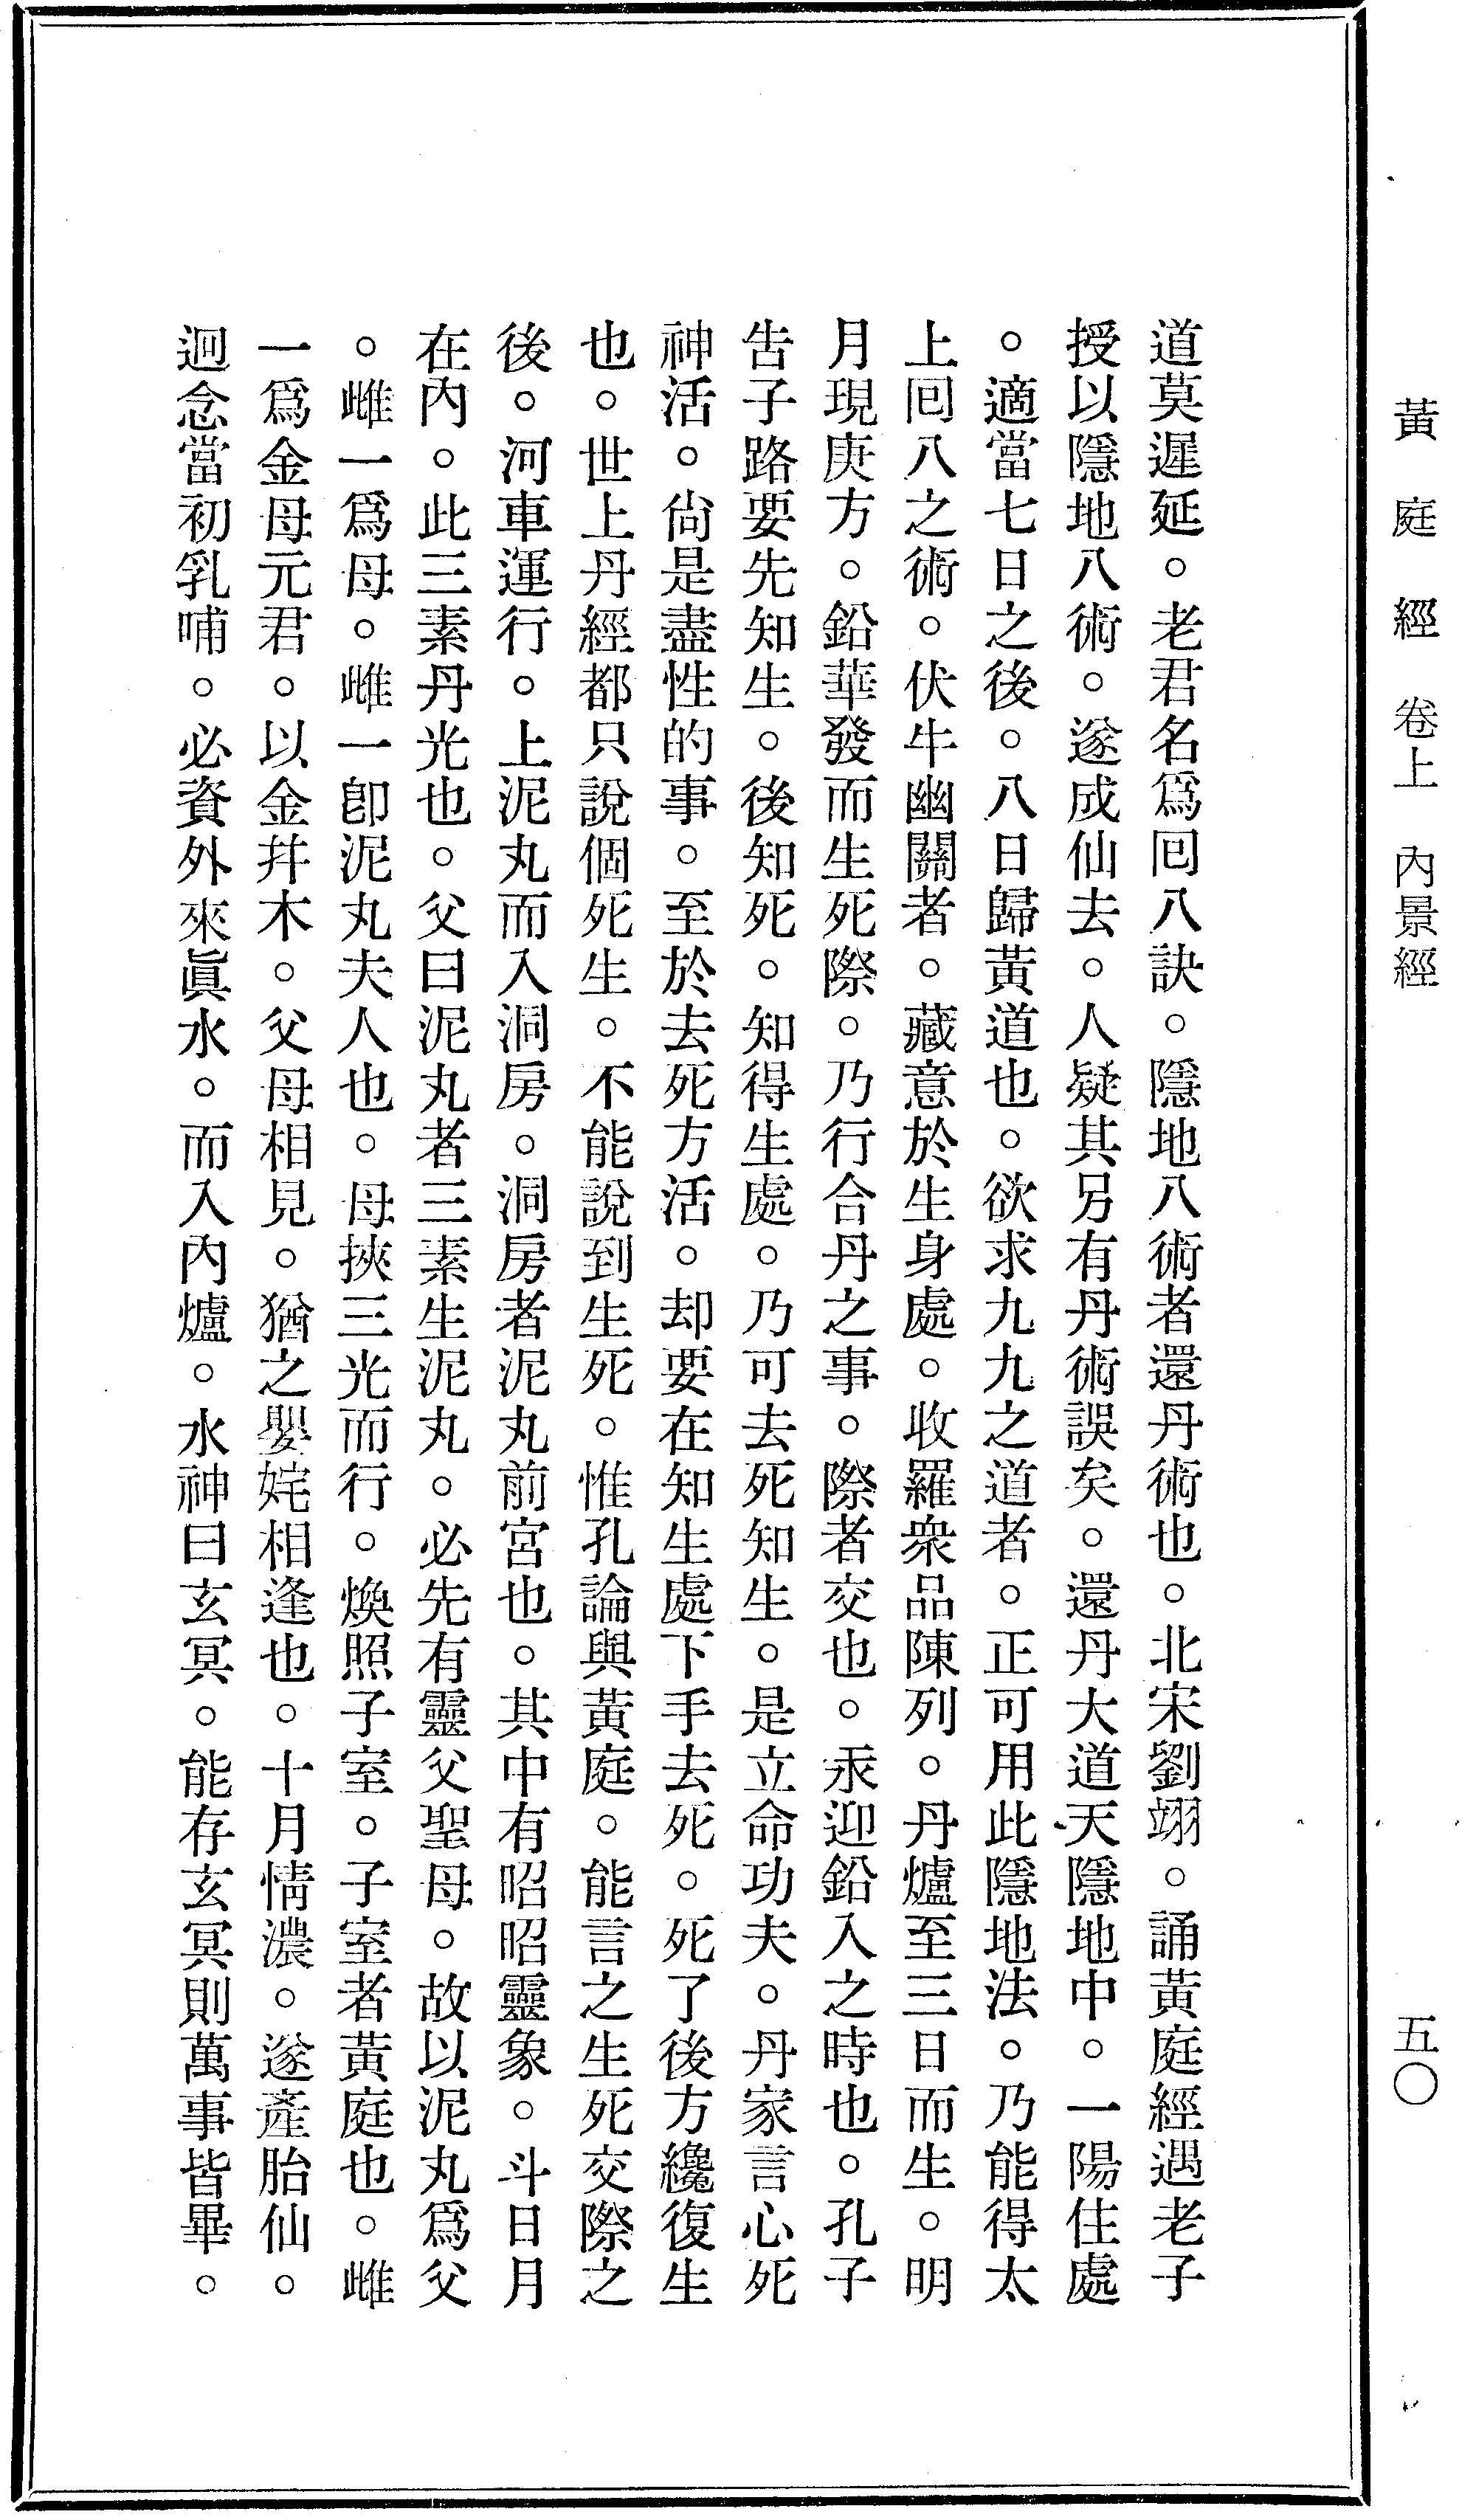 黃庭經 卷上 內景經 五〇
道莫遲延。老君名爲囘八訣。隱地八術者還丹術也。北宋劉翊。誦黃庭經遇老子
授以隱地八術。遂成仙去。人疑其另有丹術誤矣。還丹大道天隱地中。一陽住處
。適當七日之後。八日歸黃道也。欲求九九之道者。正可用此隱地法。乃能得太
上囘八之術。伏牛幽關者。藏意於生身處。收羅衆品陳列。丹爐至三日而生。明
月現庚方。鉛華發而生死際。乃行合丹之事。際者交也。汞迎鉛入之時也。孔子
告子路要先知生。後知死。知得生處。乃可去死知生。是立命功夫。丹家言心死
神活。尙是盡性的事。至於去死方活。却要在知生處下手去死。死了後方纔復生
也。世上丹經都只說個死生。不能說到生死。惟孔論與黃庭。能言之生死交際之
後。河車運行。上泥丸而入洞房。洞房者泥丸前宮也。其中有昭昭靈象。斗日月
在內。此三素丹光也。父曰泥丸者三素生泥丸。必先有靈父聖母。故以泥丸爲父
。雌一爲母。雌一卽泥丸夫人也。母挾三光而行。煥照子室。子室者黃庭也。雌
一爲金母元君。以金幷木。父母相見。猶之嬰姹相逢也。十月情濃。遂產胎仙。
迴念當初乳哺。必資外來眞水。而入內爐。水神曰玄冥。能存玄冥則萬事皆畢。